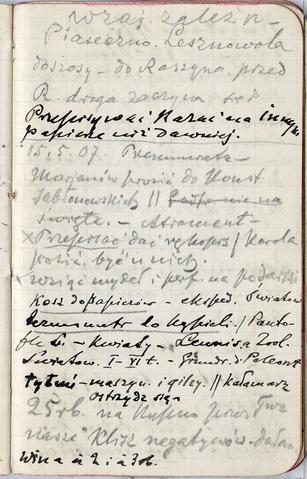 wraj zgłeź n-
Piaseczno. Lesznowola
doszosy - do Raszyna. przed
R. droga zaczyna
Przepisywać Kazać na innym
papierze niż dawniej.
15.5.07. Prenumerata -
Marjanów prosić do Konst
Jabłonowskich ||
święte. - Atrament -
× Przepisać dać rękopis / Karola
prosić być u nich.
× wziąć mydeł i perf. na podarki
Kosz do papierów - eksped. Światow
termometr do Kąpieli / Panto-
fle - Kwiaty - Leunis a Zool.
Światow. I-VI t. - Grundr. d. Paleont
tytuń - maszyn. i gilzy. || Kałamarz
Ostrzdz się
25 rb. na Kupno
nasze Klisz negatywów.
wina a 2 i a 3 rb.